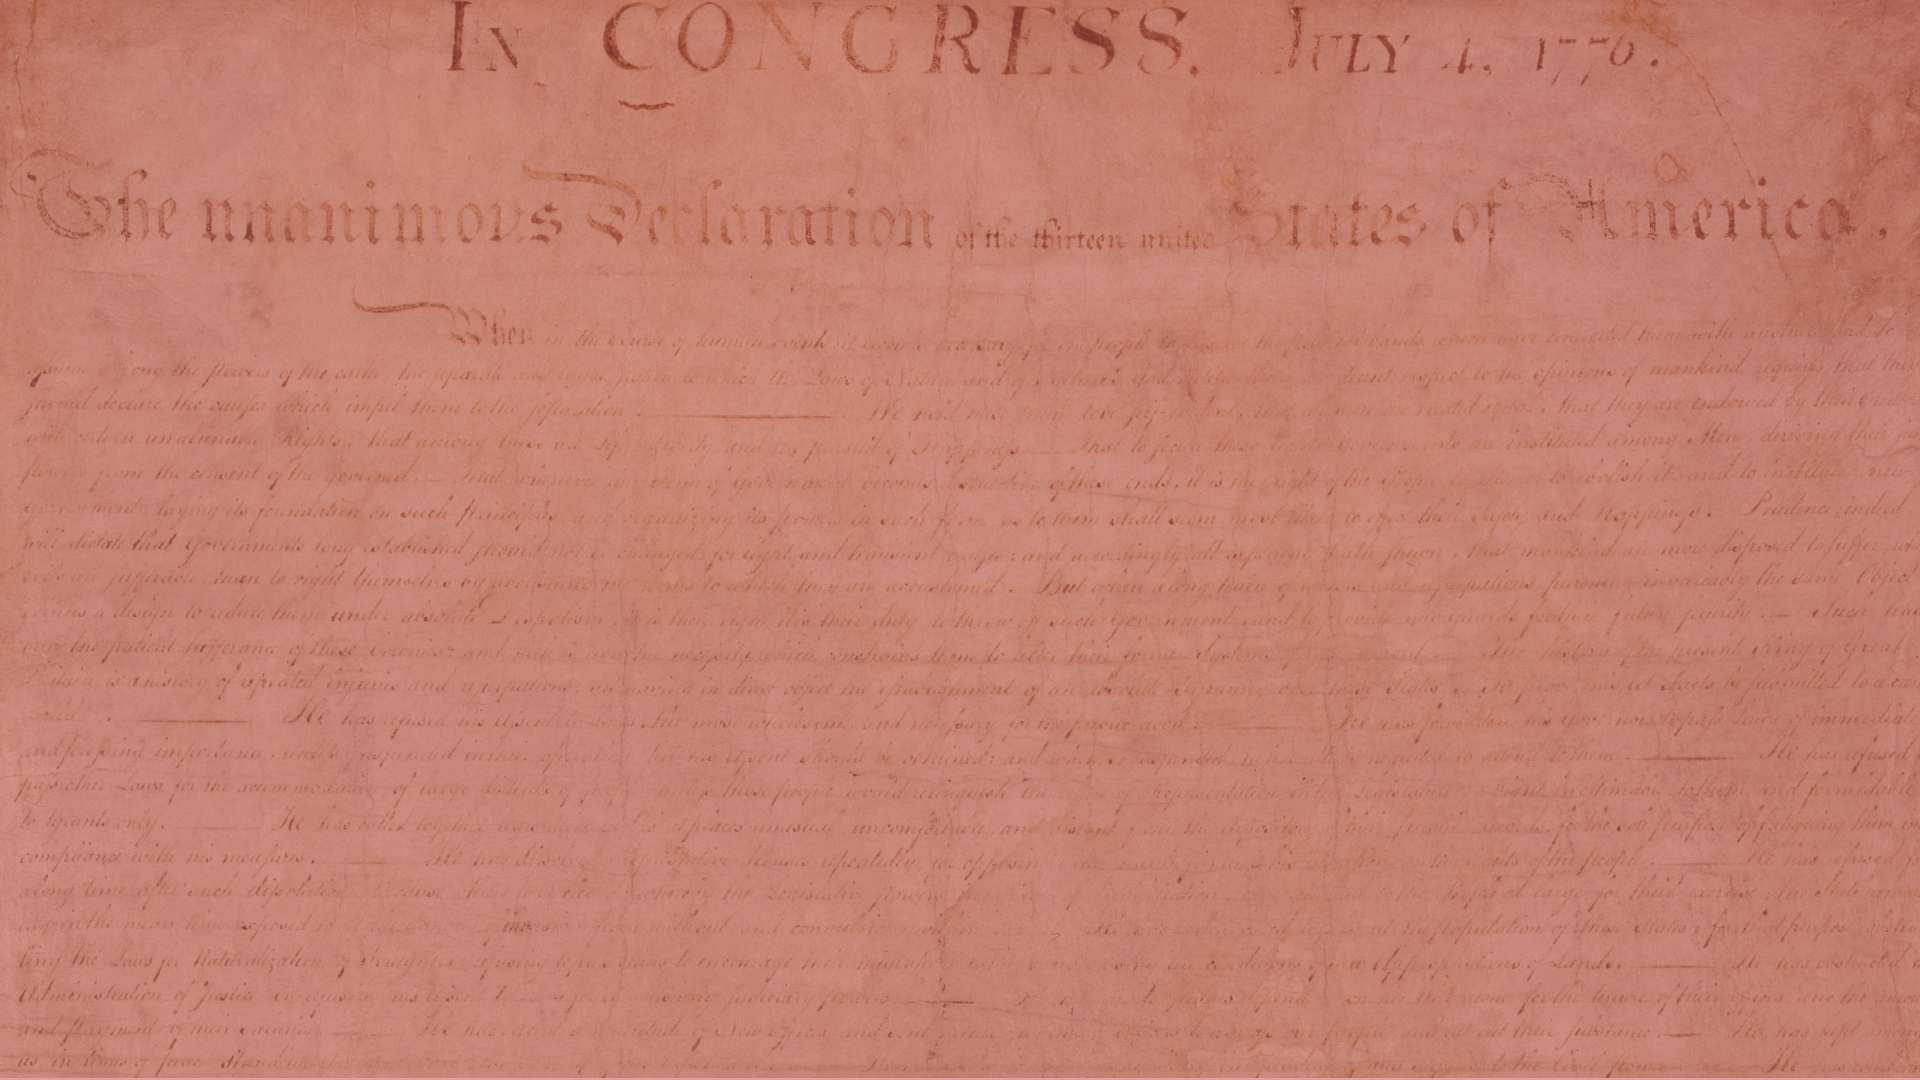 IN CONGRESS. JULY 4, 1776.
The unanimous Declaration of the thirteen united States of America.
When in the course of human events it becomes necessary for one people to dissolve the political bands which have connected them with another, and to
among the powers of the earth, the separate and equal station to which the Laws of Nature and of Nature's God entitle them, a decent respect to the opinions of mankind requires that they
should declare the causes which impel them to the separation. We hold these truths to be self-evident, that all men are created equal, that they are endowed by their Creator
with certain unalienable Rights, that among these are Life, Liberty and the pursuit of Happiness. — That to secure these rights, Governments are instituted among Men, deriving their just
powers from the consent of the governed. — That whenever any Form of Government becomes destructive of these ends, it is the Right of the People to alter or to abolish it, and to institute new
Government, laying its foundation on such principles and organizing its powers in such form, as to them shall seem most likely to effect their Safety and Happiness. Prudence, indeed,
will dictate that Governments long established should not be changed for light and transient causes; and accordingly all experience hath shewn, that mankind are more disposed to suffer, while
evils are sufferable, than to right themselves by abolishing the forms to which they are accustomed. But when a long train of abuses and usurpations, pursuing invariably the same Object
evinces a design to reduce them under absolute Despotism, it is their right, it is their duty, to throw off such Government, and to provide new Guards for their future security. — Such has
been the patient sufferance of these Colonies; and such is now the necessity which constrains them to alter their former Systems of Government. The history of the present King of Great
Britain is a history of repeated injuries and usurpations, all having in direct object the establishment of an absolute Tyranny over these States. To prove this, let Facts be submitted to a
world. He has refused his Assent to Laws, the most wholesome and necessary for the public good. He has forbidden his Governors to pass Laws of immediate
and pressing importance, unless suspended in their operation till his Assent should be obtained; and when so suspended, he has utterly neglected to attend to them. He has refused
pass other Laws for the accommodation of large districts of people, unless those people would relinquish the right of Representation in the Legislature, a right inestimable to them and formidable
to tyrants only. He has called together legislative bodies at places unusual, uncomfortable, and distant from the depository of their public Records, for the sole purpose of fatiguing them into
compliance with his measures. He has dissolved Representative Houses repeatedly, for opposing with manly firmness his invasions on the rights of the people. He has refused for
a long time, after such dissolutions, to cause others to be elected; whereby the Legislative powers, incapable of Annihilation, have returned to the People at large for their exercise; the State
in the mean time exposed to all the dangers of invasion from without, and convulsions within. He has endeavoured to prevent the population of these States; for that purpose
ting the Laws for Naturalization of Foreigners; refusing to pass others to encourage their migrations hither, and raising the conditions of new Appropriations of Lands. He has obstructed the
Administration of Justice, by refusing his Assent to Laws for establishing Judiciary powers. He has made Judges dependent on his Will alone, for the tenure of their offices, and the amount
and payment of their salaries. He has erected a multitude of New Offices, and sent hither swarms of Officers to harrass our people, and eat out their substance. He has kept among
us, in times of peace, Standing Armies to the Civil power. He has